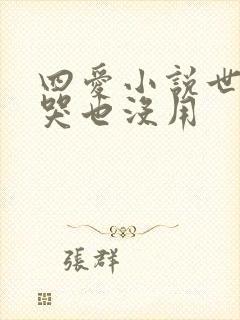 四愛小說世
哭也沒用
張群